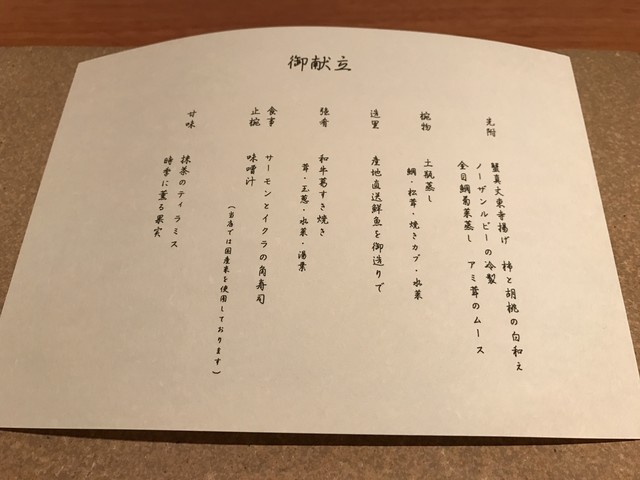 御献立
先附
蟹真丈東寺揚げ 柿と胡桃の白和え
ノーザンルビーの冷製
金目鯛菊菜蒸し アミ茸のムース
椀物
土瓶蒸し
鯛・松茸・焼きカブ・水菜
造里
産地直送鮮魚を御造りで
強肴
和牛葛すき焼き
茸・玉葱・水菜・湯葉
食事
止椀
サーモンとイクラの角寿司
味噌汁
(当店では国産米を使用しております)
甘味
抹茶のティラミス
時季に薫る果実